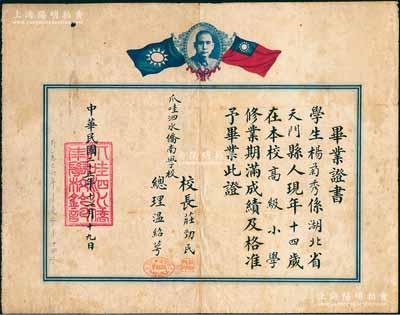 畢業證書
學生楊菊秀係湖北省
天門縣人現年十四歲
在本校高級小學
修業期滿成績及格准
予畢業此證
爪哇泗水僑南學校
校長莊勁民
總理溫紹
中華民國二十九年 月十九日
上海陽明拍賣